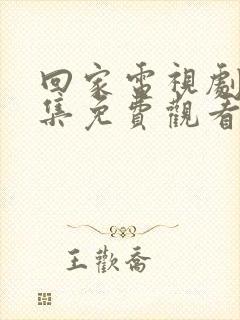 回家電視劇
集免費觀看
王歡喬